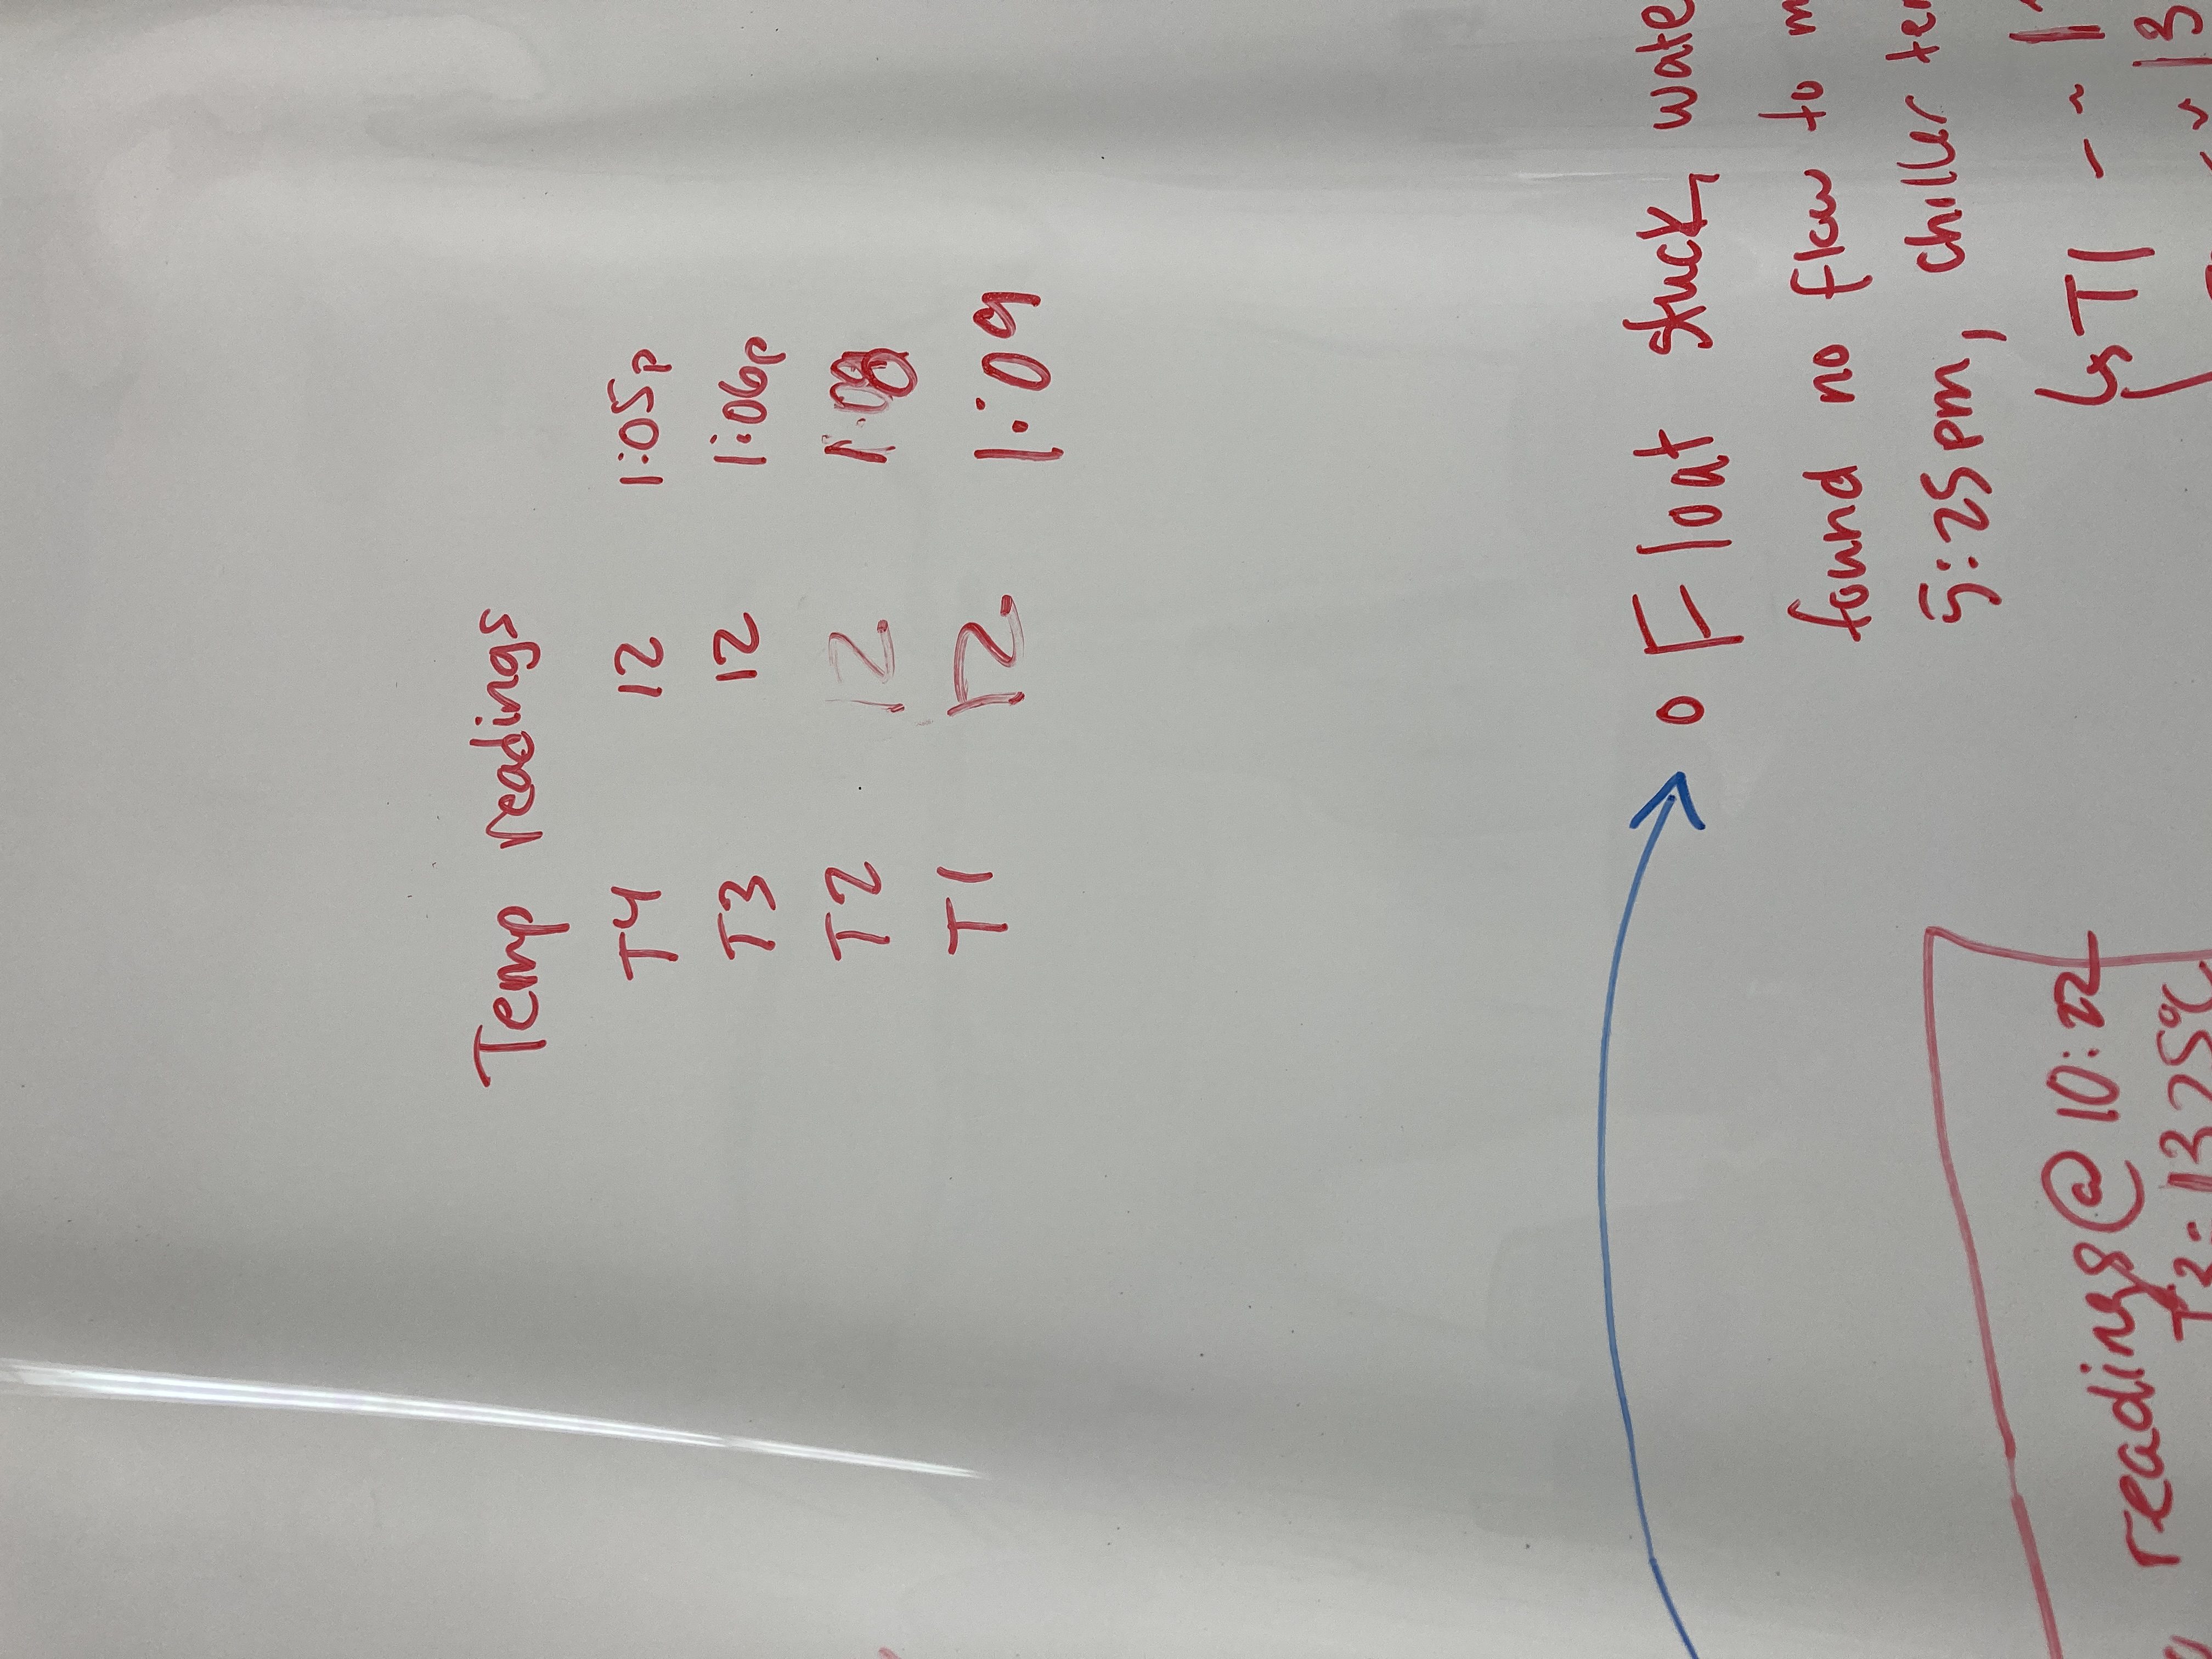 Temp readings
T4 12 1:05p
T3 12 1:06p
T2 12 1:08
T1 12 1:09
o Float stuck, wate
found no flow to m
5:25pm, chiller te
↳ T1 --~ 1
~ 13
readings @ 10:22
T3 = 13.25°C